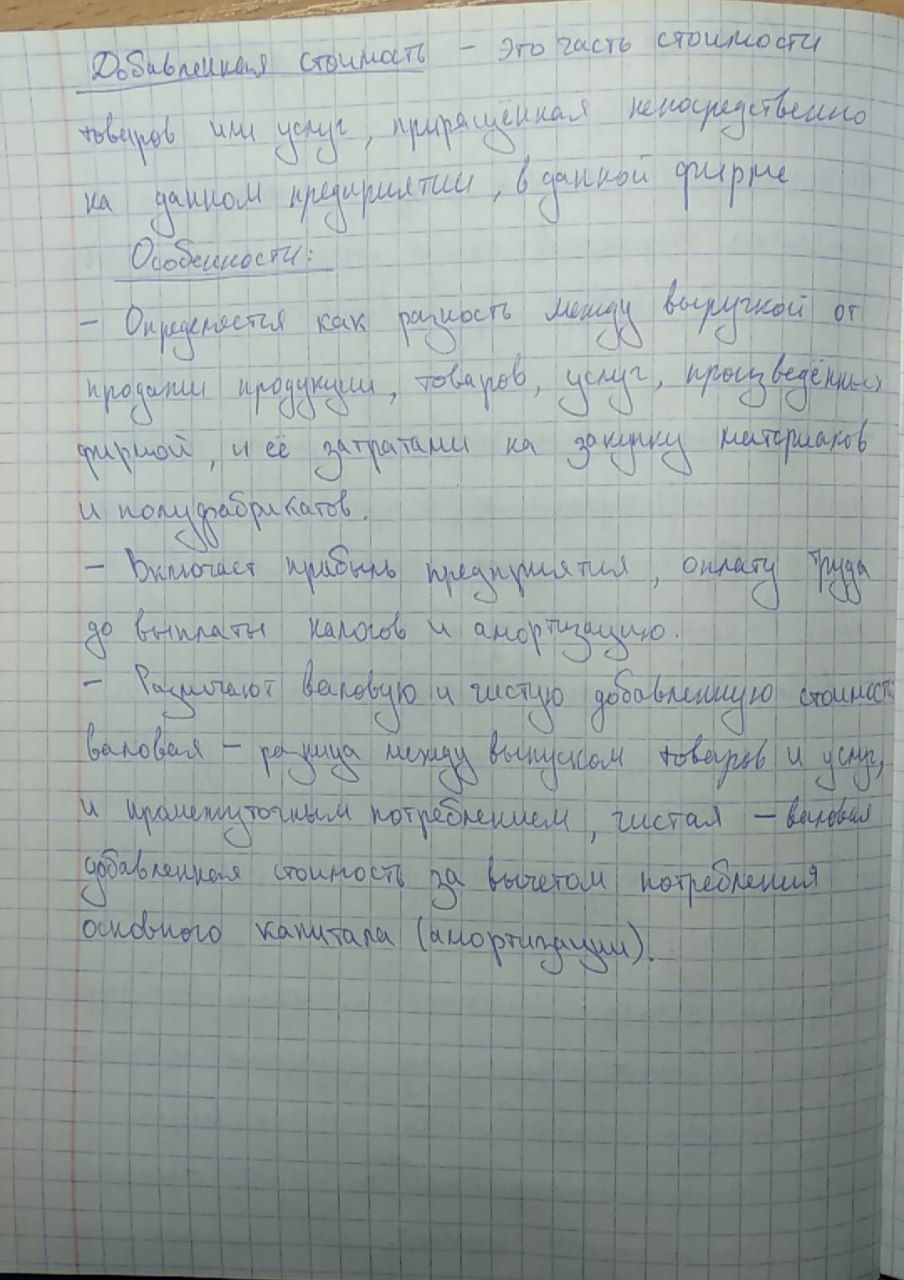 Добавленная стоимость – это часть стоимости
товаров или услуг, приращённая непосредственно
на данном предприятии, в данной фирме
Особенности:
– Определяется как разность между выручкой от
продажи продукции, товаров, услуг, произведённых
фирмой, и её затратами на закупку материалов
и полуфабрикатов.
– Включает прибыль предприятия, оплату труда
до выплаты налогов и амортизацию.
– Различают валовую и чистую добавленную стоимость:
валовая – разница между выпуском товаров и услуг,
и промежуточным потреблением, чистая – валовая
добавленная стоимость за вычетом потребления
основного капитала (амортизации).